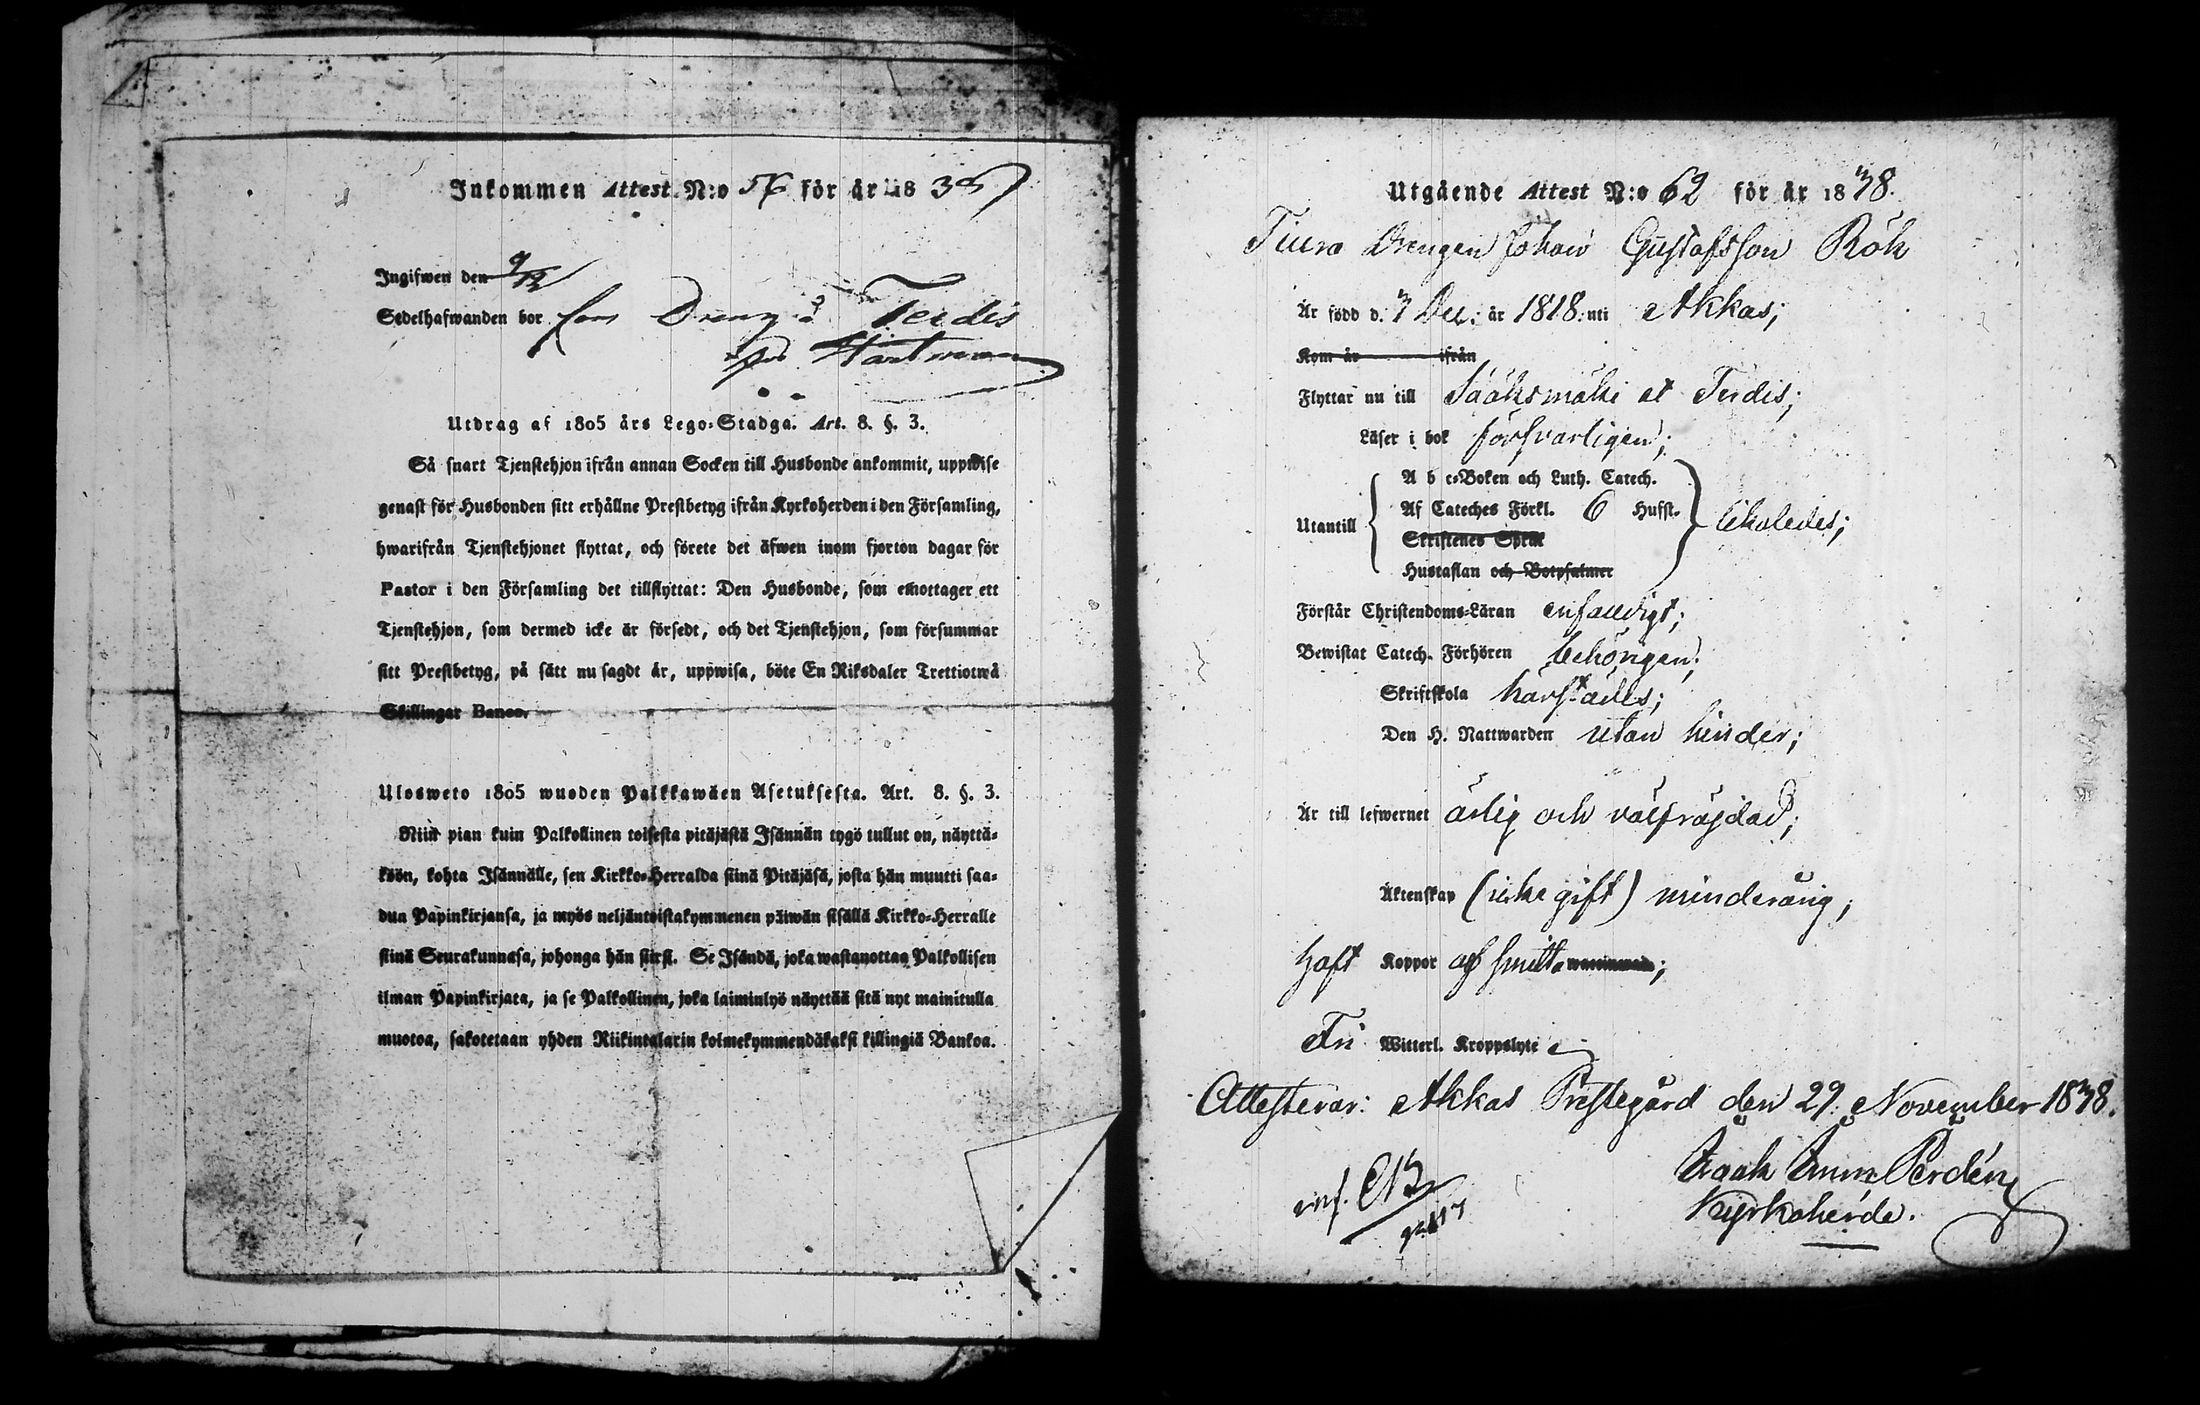 Inkommen Attest N:o 56 för år 1838
Ingifwen den 9/12
Sedelhafwanden bor som Dreng å Terdis
hos Hartman
Utdrag af 1805 års Lego-Stadga. Art. 8. §. 3.
Så snart Tjenstehjon ifrån annan Socken till Husbonde ankommit, uppwise
genast för Husbonden sitt erhållne Prestbetyg ifrån Kyrkoherden i den Församling,
hwarifrån Tjenstehjonet flyttat, och förete det äfwen inom fjorton dagar för
Pastor i den Församling det tillflyttat: Den Husbonde, som emottager ett
Tjenstehjon, som dermed icke är försedt, och det Tjenstehjon, som försummar
sitt Prestbetyg, på sätt nu sagdt är, uppwisa, böte En Riksdaler Trettiotwå
Skillingar Banco.
Ulosweto 1805 wuoden Palkkawäen Asetuksesta. Art. 8. §. 3.
Niin pian kuin Palkollinen toisesta pitäjästä Isännän tygö tullut on, näyttä-
köön, kohta Isännälle, sen Kirkko-Herralda siinä Pitäjäsä, josta hän muutti saa-
dun Papinkirjansa, ja myös neljäntoistakymmenen päiwän sisällä Kirkko-Herralle
siinä Seurakunnasa, johonga hän siirsi. Se Isändä, joka wastanottaa Palkollisen
ilman Papinkirjata, ja se Palkollinen, joka laiminlyö näyttää sitä nyt mainitulla
muotoa, sakotetaan yhden Riikintalarin kolmekymmendäkaksi killingiä Bankoa.
Utgående Attest N:o 62 för år 1838.
Drengen Johan Gustafsson Röh
Är född d. 7 Dec: år 1818: uti Akkas;
Kom år ifrån
Flyttar nu till Sääksmäki et Terdis;
Läser i bok försvarligen;
Utantill
A b c-Boken och Luth. Catech.
Af Cateches Förkl. 6 Hufst.
Skriftenes Språk
Hustaflan och Botpsalmer
likaledes;
Förstår Christendoms-Läran enfaldigt;
Bewistat Catech. Förhören behörigen;
Skriftskola härstädes;
Den H. Nattwarden utan hinder;
Är till lefwernet ärlig och välfräjdad;
Äktenskap (icke gift) minderårig;
Haft Koppor af smitta;
Fri Witterl. Kroppslyte
Attesterar: Akkas Prestegård den 29. November 1838.
Kyrkoherde.